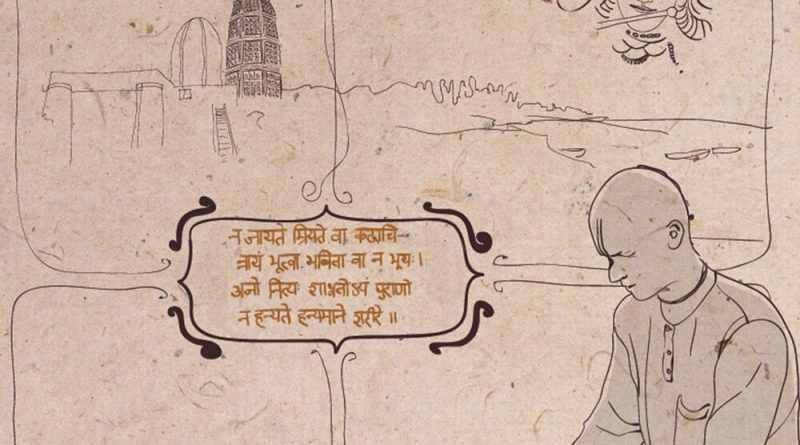 न जायते म्रियते वा कदाचि-
न्नायं भूत्वा भविता वा न भूयः ।
अजो नित्यः शाश्वतोऽयं पुराणो
न हन्यते हन्यमाने शरीरे ॥